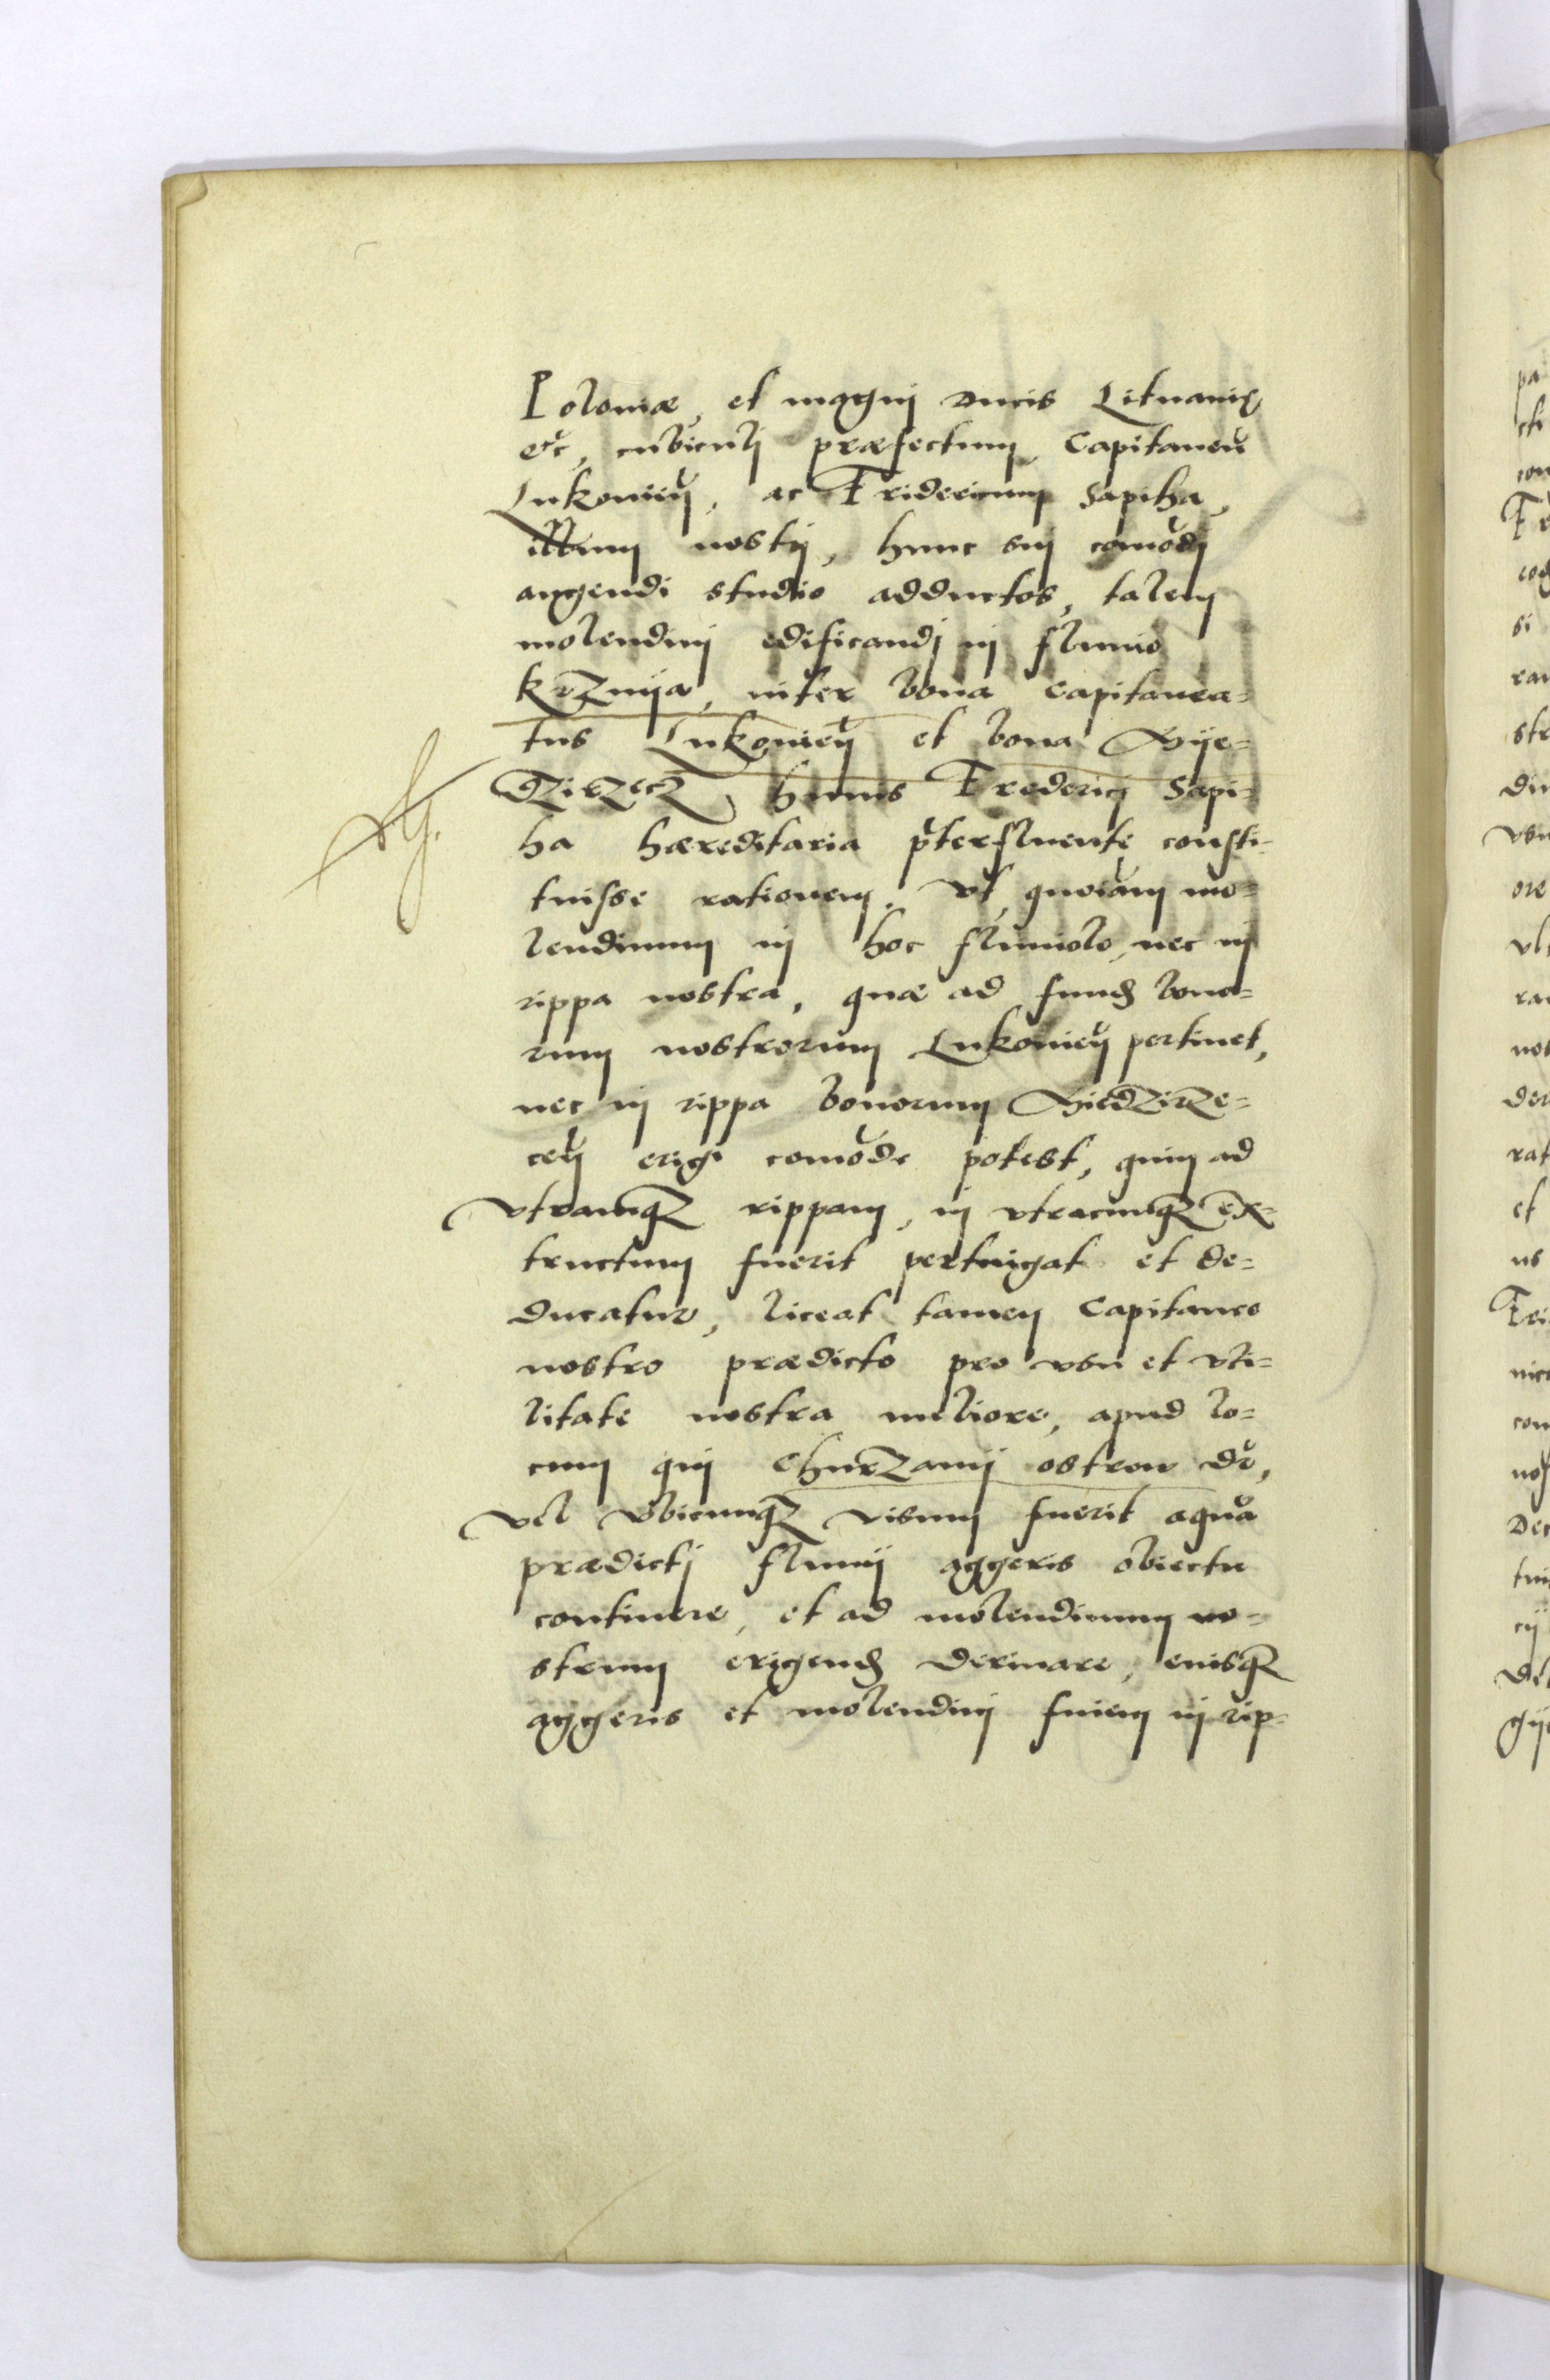 Poloniæ, et magni Ducis Lituaniȩ
etc, cubiculi præfectum, Capitaneu
Lukovien, ac Fridericum Sapiha,
illum nostri, hunc sui comodi
augendi studio adductos, talem
molendini edificandi in fluvio
krznija, inter bona Capitanea=
tus Lukovien et bona Mije=
dzirzecz huius Frederici Sapi=
ha hæreditaria pterfluente consti=
tuisse rationem. Ut quoniam mo=
lendinum in hoc fluviolo, nec in
rippa nostra, quæ ad fund bono=
rum nostrorum Lukovien pertinet,
nec in rippa bonorum Miedzirze=
cen erigi comode potest, quin ad
utramqz rippam, in utracunqz ex=
tructum fuerit pertingat et de=
ducatur, liceat tamen Capitaneo
nostro prædicto pro usu et uti=
litate nostra meliore, apud lo=
cum qui Churzanij ostrow dr,
vel ubicunqz visum fuerit aqua
prædicti fluvij aggeris obiectu
continere, et ad molendinum no=
strum erigend derivare, eiusqz
aggeris et molendini finem in rip=